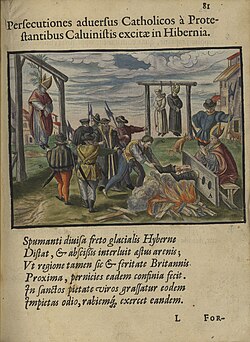 81
Persecutiones aduersus Catholicos à Prote-
stantibus Caluinistis excitæ in Hibernia.
Spumanti diuisa freto glacialis Hyberne
Distat, & abscissis interluit æstus arenis;
Vt regione tamen sic & feritate Britannis
Proxima, pernicies eadem confinia fecit.
In sanctos pietate viros grassatur eodem
Impietas odio, rabiemq́; exercet eandem.
L FOR-